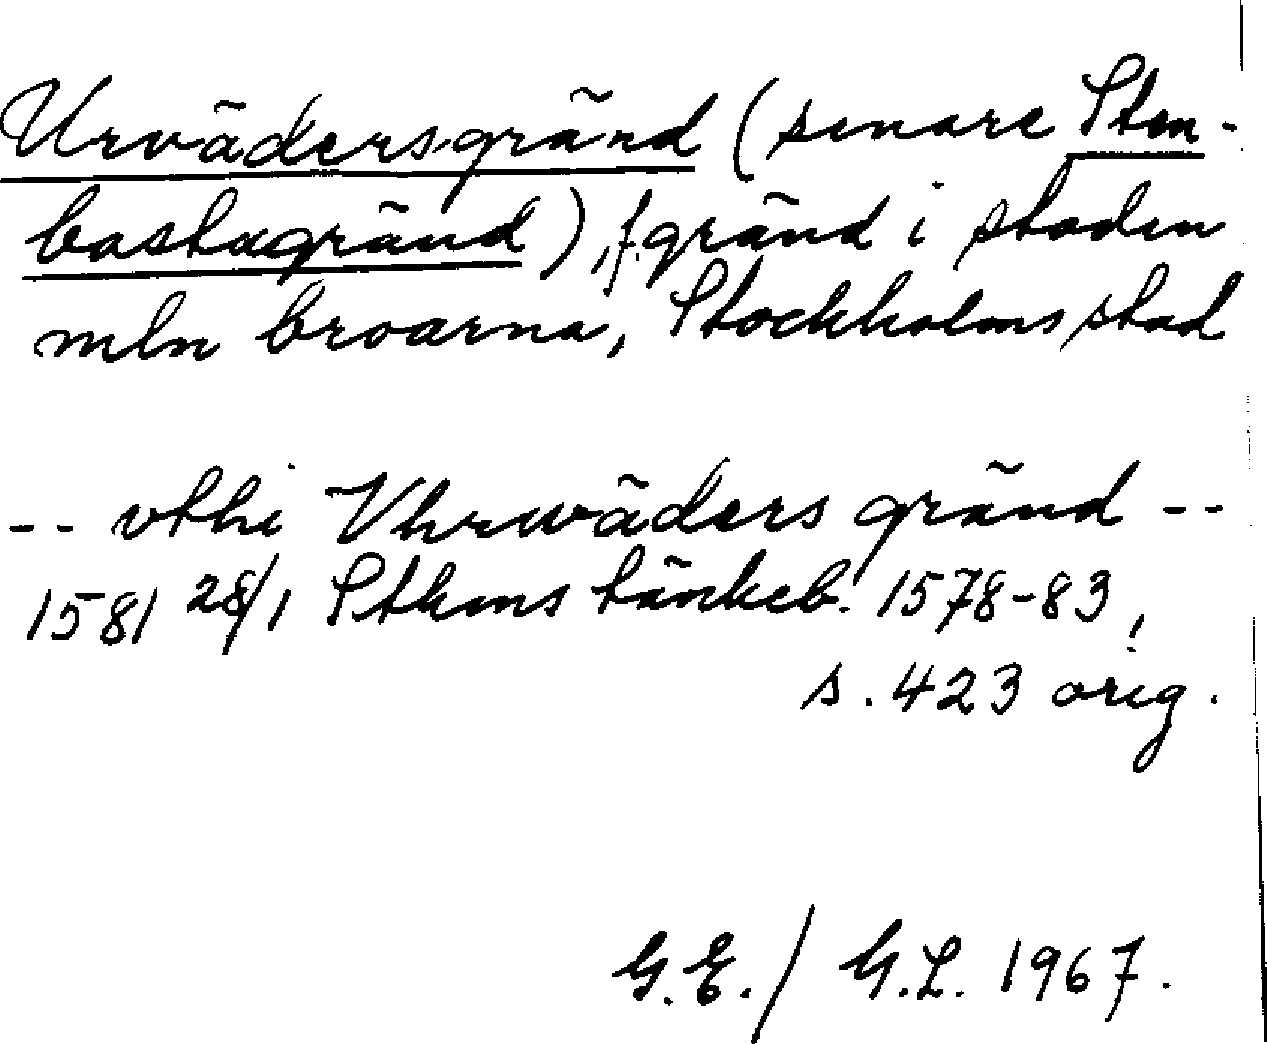 Urvädersgränd (senare Sten-
bastugränd), f. gränd i staden
mln broarna, Stockholms stad
-- vthi Vhrwäders gränd --
1581 28/1 Stkms tänkeb. 1578-83,
s. 423 orig.
G.E./ G.L. 1967.